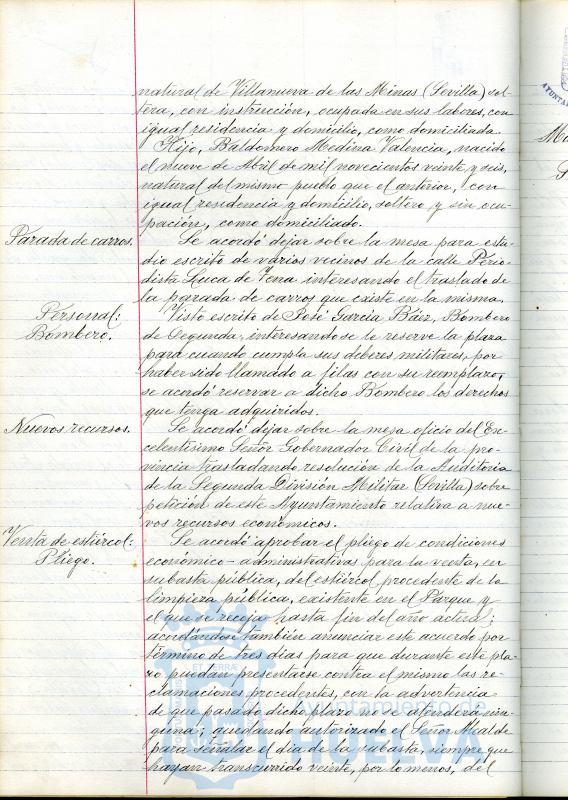 natural de Villanueva de las Minas (Sevilla) sol-
tera, con instrucción, ocupada en sus labores, con
igual residencia y domicilio, como domiciliada.
Hijo, Baldomero Medina Valencia, nacido
el nueve de Abril de mil novecientos veinte y seis,
natural del mismo pueblo que el anterior, con
igual residencia y domicilio, soltero y sin ocu-
pación, como domiciliado.
Parada de carros.
Se acordó dejar sobre la mesa para estu-
dio escrito de varios vecinos de la calle Perio-
dista Luca de Tena interesando el traslado de
la parada de carros que existe en la misma.
Personal:
Bombero.
Visto escrito de José García Báez, Bombero
de Segunda, interesando se le reserve la plaza
para cuando cumpla sus deberes militares, por
haber sido llamado a filas con su reemplazo,
se acordó reservar a dicho Bombero los derechos
que tenga adquiridos.
Nuevos recursos.
Se acordó dejar sobre la mesa oficio del Ex-
celentísimo Señor Gobernador Civil de la pro-
vincia trasladando resolución de la Auditoria
de la Segunda División Militar (Sevilla) sobre
petición de este Ayuntamiento relativa a nue-
vos recursos económicos.
Venta de estiércol:
Pliego.
Se acordó aprobar el pliego de condiciones
económico-administrativas para la venta, en
subasta pública, del estiércol procedente de la
limpieza pública, existente en el Parque y
el que se recoja hasta fin del año actual;
acordándose también anunciar este acuerdo por
término de tres días para que durante este pla-
zo puedan presentarse contra el mismo las re-
clamaciones procedentes, con la advertencia
de que pasado dicho plazo no se atenderá nin-
guna; quedando autorizado el Señor Alcalde
para señalar el día de la subasta, siempre que
hayan transcurrido veinte, por lo menos, del
Ayuntamiento de
HUELVA